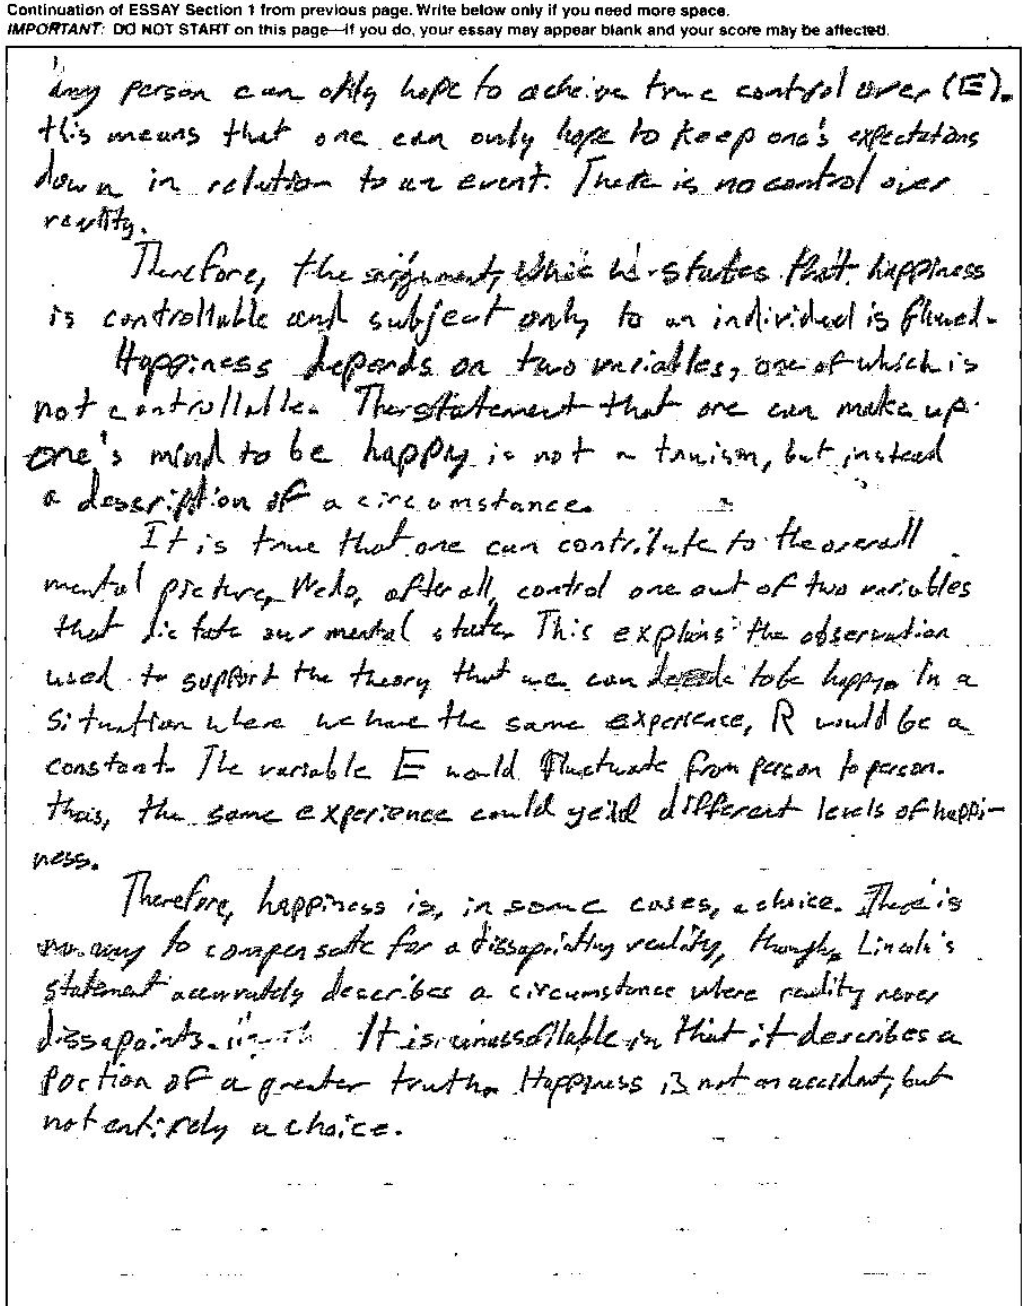 Continuation of ESSAY Section 1 from previous page. Write below only if you need more space.
IMPORTANT: DO NOT START on this page—if you do, your essay may appear blank and your score may be affected.
any person can only hope to acheive true control over (E).
this means that one can only hope to keep one's expectations
down in relation to an event. There is no control over
reality.
Therefore, the argument, which states that happiness
is controllable and subject only to an individual is flawed.
Happiness depends on two variables, one of which is
not controllable. The statement that one can make up
one's mind to be happy is not a truism, but instead
a description of a circumstance.
It is true that one can contribute to the overall
mental picture, We do, after all, control one out of two variables
that dictate our mental state. This explains the observation
used to support the theory that we can decide to be happy. In a
situation where we have the same experience, R would be a
constant. The variable E would fluctuate from person to person.
thus, the same experience could yeild different levels of happi-
ness.
Therefore, happiness is, in some cases, a choice. There is
no way to compensate for a dissapointing reality, though. Lincoln's
statement accurately describes a circumstance where reality never
dissapoints. It is unassailable in that it describes a
portion of a greater truth. Happiness is not an accident, but
not entirely a choice.